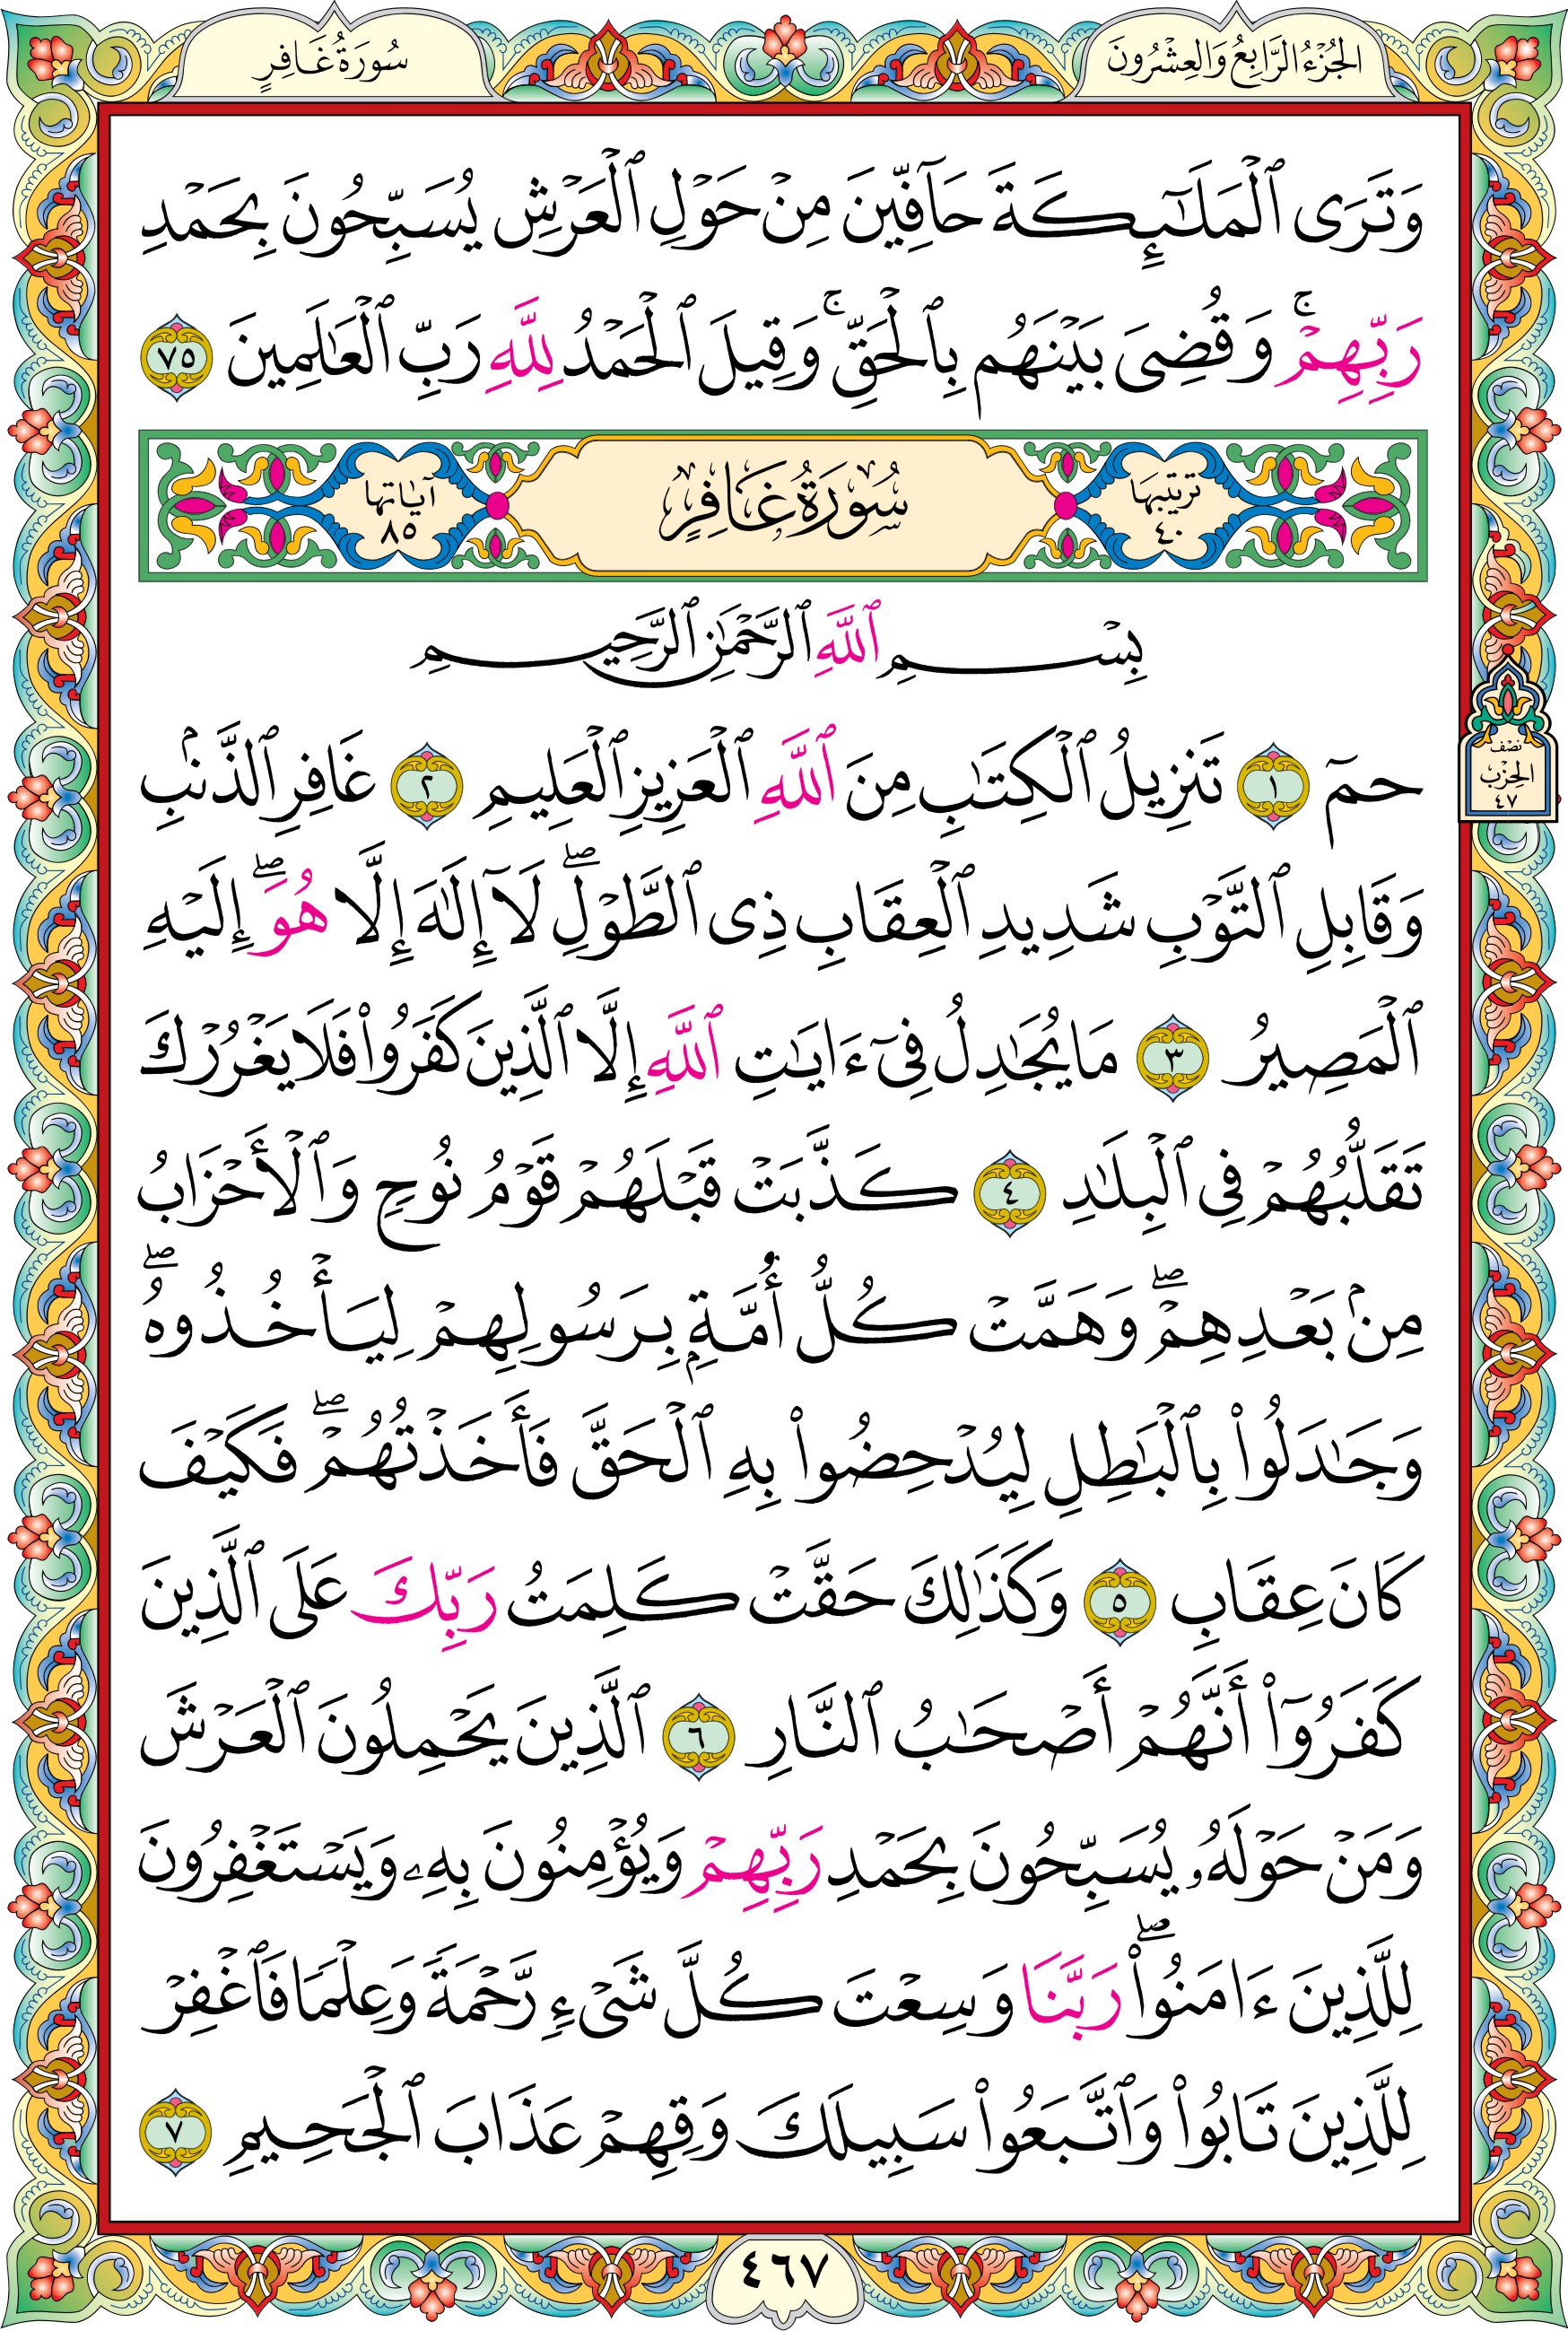 الجُزْءُ الرَّابِعُ وَالعِشْرُونَ
سُورَةُ غَافِرٍ
وَتَرَى ٱلْمَلَـٰٓئِكَةَ حَآفِّينَ مِنْ حَوْلِ ٱلْعَرْشِ يُسَبِّحُونَ بِحَمْدِ
رَبِّهِمْ ۚ وَقُضِىَ بَيْنَهُم بِٱلْحَقِّ ۚ وَقِيلَ ٱلْحَمْدُ لِلَّهِ رَبِّ ٱلْعَـٰلَمِينَ ٧٥
ترتيبها ٤٠ سُورَةُ غَافِرٍ آياتها ٨٥
بِسْمِ ٱللَّهِ ٱلرَّحْمَـٰنِ ٱلرَّحِيمِ
حمٓ ١ تَنزِيلُ ٱلْكِتَـٰبِ مِنَ ٱللَّهِ ٱلْعَزِيزِ ٱلْعَلِيمِ ٢ غَافِرِ ٱلذَّنۢبِ
وَقَابِلِ ٱلتَّوْبِ شَدِيدِ ٱلْعِقَابِ ذِى ٱلطَّوْلِ ۖ لَآ إِلَـٰهَ إِلَّا هُوَ ۖ إِلَيْهِ
ٱلْمَصِيرُ ٣ مَا يُجَـٰدِلُ فِىٓ ءَايَـٰتِ ٱللَّهِ إِلَّا ٱلَّذِينَ كَفَرُوا۟ فَلَا يَغْرُرْكَ
تَقَلُّبُهُمْ فِى ٱلْبِلَـٰدِ ٤ كَذَّبَتْ قَبْلَهُمْ قَوْمُ نُوحٍ وَٱلْأَحْزَابُ
مِنۢ بَعْدِهِمْ ۖ وَهَمَّتْ كُلُّ أُمَّةٍۭ بِرَسُولِهِمْ لِيَأْخُذُوهُ ۖ
وَجَـٰدَلُوا۟ بِٱلْبَـٰطِلِ لِيُدْحِضُوا۟ بِهِ ٱلْحَقَّ فَأَخَذْتُهُمْ ۖ فَكَيْفَ
كَانَ عِقَابِ ٥ وَكَذَٰلِكَ حَقَّتْ كَلِمَتُ رَبِّكَ عَلَى ٱلَّذِينَ
كَفَرُوٓا۟ أَنَّهُمْ أَصْحَـٰبُ ٱلنَّارِ ٦ ٱلَّذِينَ يَحْمِلُونَ ٱلْعَرْشَ
وَمَنْ حَوْلَهُۥ يُسَبِّحُونَ بِحَمْدِ رَبِّهِمْ وَيُؤْمِنُونَ بِهِۦ وَيَسْتَغْفِرُونَ
لِلَّذِينَ ءَامَنُوا۟ ۖ رَبَّنَا وَسِعْتَ كُلَّ شَىْءٍ رَّحْمَةً وَعِلْمًا فَٱغْفِرْ
لِلَّذِينَ تَابُوا۟ وَٱتَّبَعُوا۟ سَبِيلَكَ وَقِهِمْ عَذَابَ ٱلْجَحِيمِ ٧
نصف
الحزب
٤٧
٤٦٧